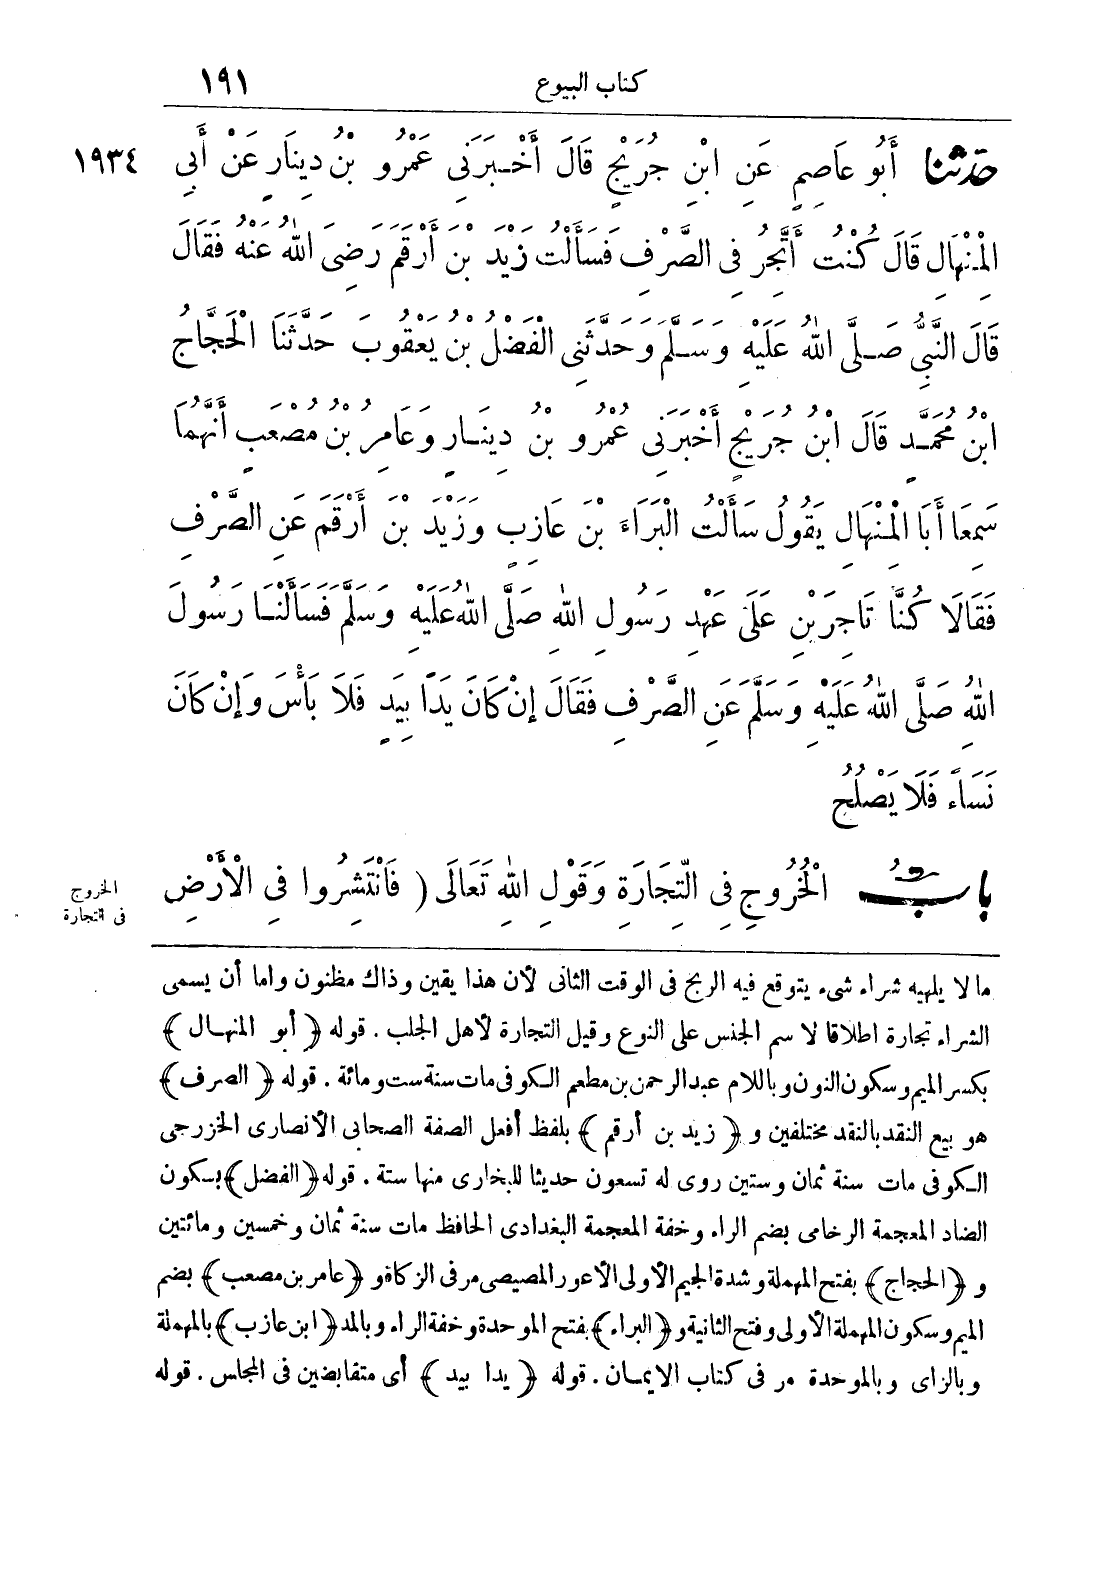 كتاب البيوع ١٩١
حَدَّثَنَا أَبُو عَاصِمٍ عَنِ ابْنِ جُرَيْجٍ قَالَ أَخْبَرَنِى عَمْرُو بْنُ دِينَارٍ عَنْ أَبِى ١٩٣٤
الْمِنْهَالِ قَالَ كُنْتُ أَتَّجِرُ فِى الصَّرْفِ فَسَأَلْتُ زَيْدَ بْنَ أَرْقَمَ رَضِىَ اللهُ عَنْهُ فَقَالَ
قَالَ النَّبِىُّ صَلَّى اللهُ عَلَيْهِ وَسَلَّمَ وَحَدَّثَنِى الْفَضْلُ بْنُ يَعْقُوبَ حَدَّثَنَا الْحَجَّاجُ
ابْنُ مُحَمَّدٍ قَالَ ابْنُ جُرَيْجٍ أَخْبَرَنِى عَمْرُو بْنُ دِينَارٍ وَعَامِرُ بْنُ مُصْعَبٍ أَنَّهُمَا
سَمِعَا أَبَا الْمِنْهَالِ يَقُولُ سَأَلْتُ الْبَرَاءَ بْنَ عَازِبٍ وَزَيْدَ بْنَ أَرْقَمَ عَنِ الصَّرْفِ
فَقَالَا كُنَّا تَاجِرَيْنِ عَلَى عَهْدِ رَسُولِ اللهِ صَلَّى اللهُ عَلَيْهِ وَسَلَّمَ فَسَأَلْنَا رَسُولَ
اللهِ صَلَّى اللهُ عَلَيْهِ وَسَلَّمَ عَنِ الصَّرْفِ فَقَالَ إِنْ كَانَ يَدًا بِيَدٍ فَلَا بَأْسَ وَإِنْ كَانَ
نَسَاءً فَلَا يَصْلُحُ
بَابُ الْخُرُوجِ فِى التِّجَارَةِ وَقَوْلِ اللهِ تَعَالَى ( فَانْتَشِرُوا فِى الْأَرْضِ
الخروج
فى التجارة
ما لا يلهيه شراء شىء يتوقع فيه الربح فى الوقت الثانى لأن هذا يقين وذاك مظنون واما أن يسمى
الشراء تجارة اطلاقا لاسم الجنس على النوع وقيل التجارة لأهل الجلب . قوله ﴿ أبو المنهال ﴾
بكسر الميم وسكون النون وباللام عبد الرحمن بن مطعم الكوفى مات سنة ست ومائة . قوله ﴿ الصرف ﴾
هو بيع النقد بالنقد مختلفين و ﴿ زيد بن أرقم ﴾ بلفظ أفعل الصفة الصحابى الأنصارى الخزرجى
الكوفى مات سنة ثمان وستين روى له تسعون حديثا للبخارى منها ستة . قوله ﴿ الفضل ﴾ بسكون
الضاد المعجمة الرخامى بضم الراء وخفة المعجمة البغدادى الحافظ مات سنة ثمان وخمسين ومائتين
و ﴿ الحجاج ﴾ بفتح المهملة وشدة الجيم الأولى الأعور المصيصى مر فى الزكاة و ﴿ عامر بن مصعب ﴾ بضم
الميم وسكون المهملة الأولى وفتح الثانية و ﴿ البراء ﴾ بفتح الموحدة وخفة الراء وبالمد ﴿ ابن عازب ﴾ بالمهملة
وبالزاى وبالموحدة مر فى كتاب الايمان . قوله ﴿ يدا بيد ﴾ أى متقابضين فى المجلس . قوله